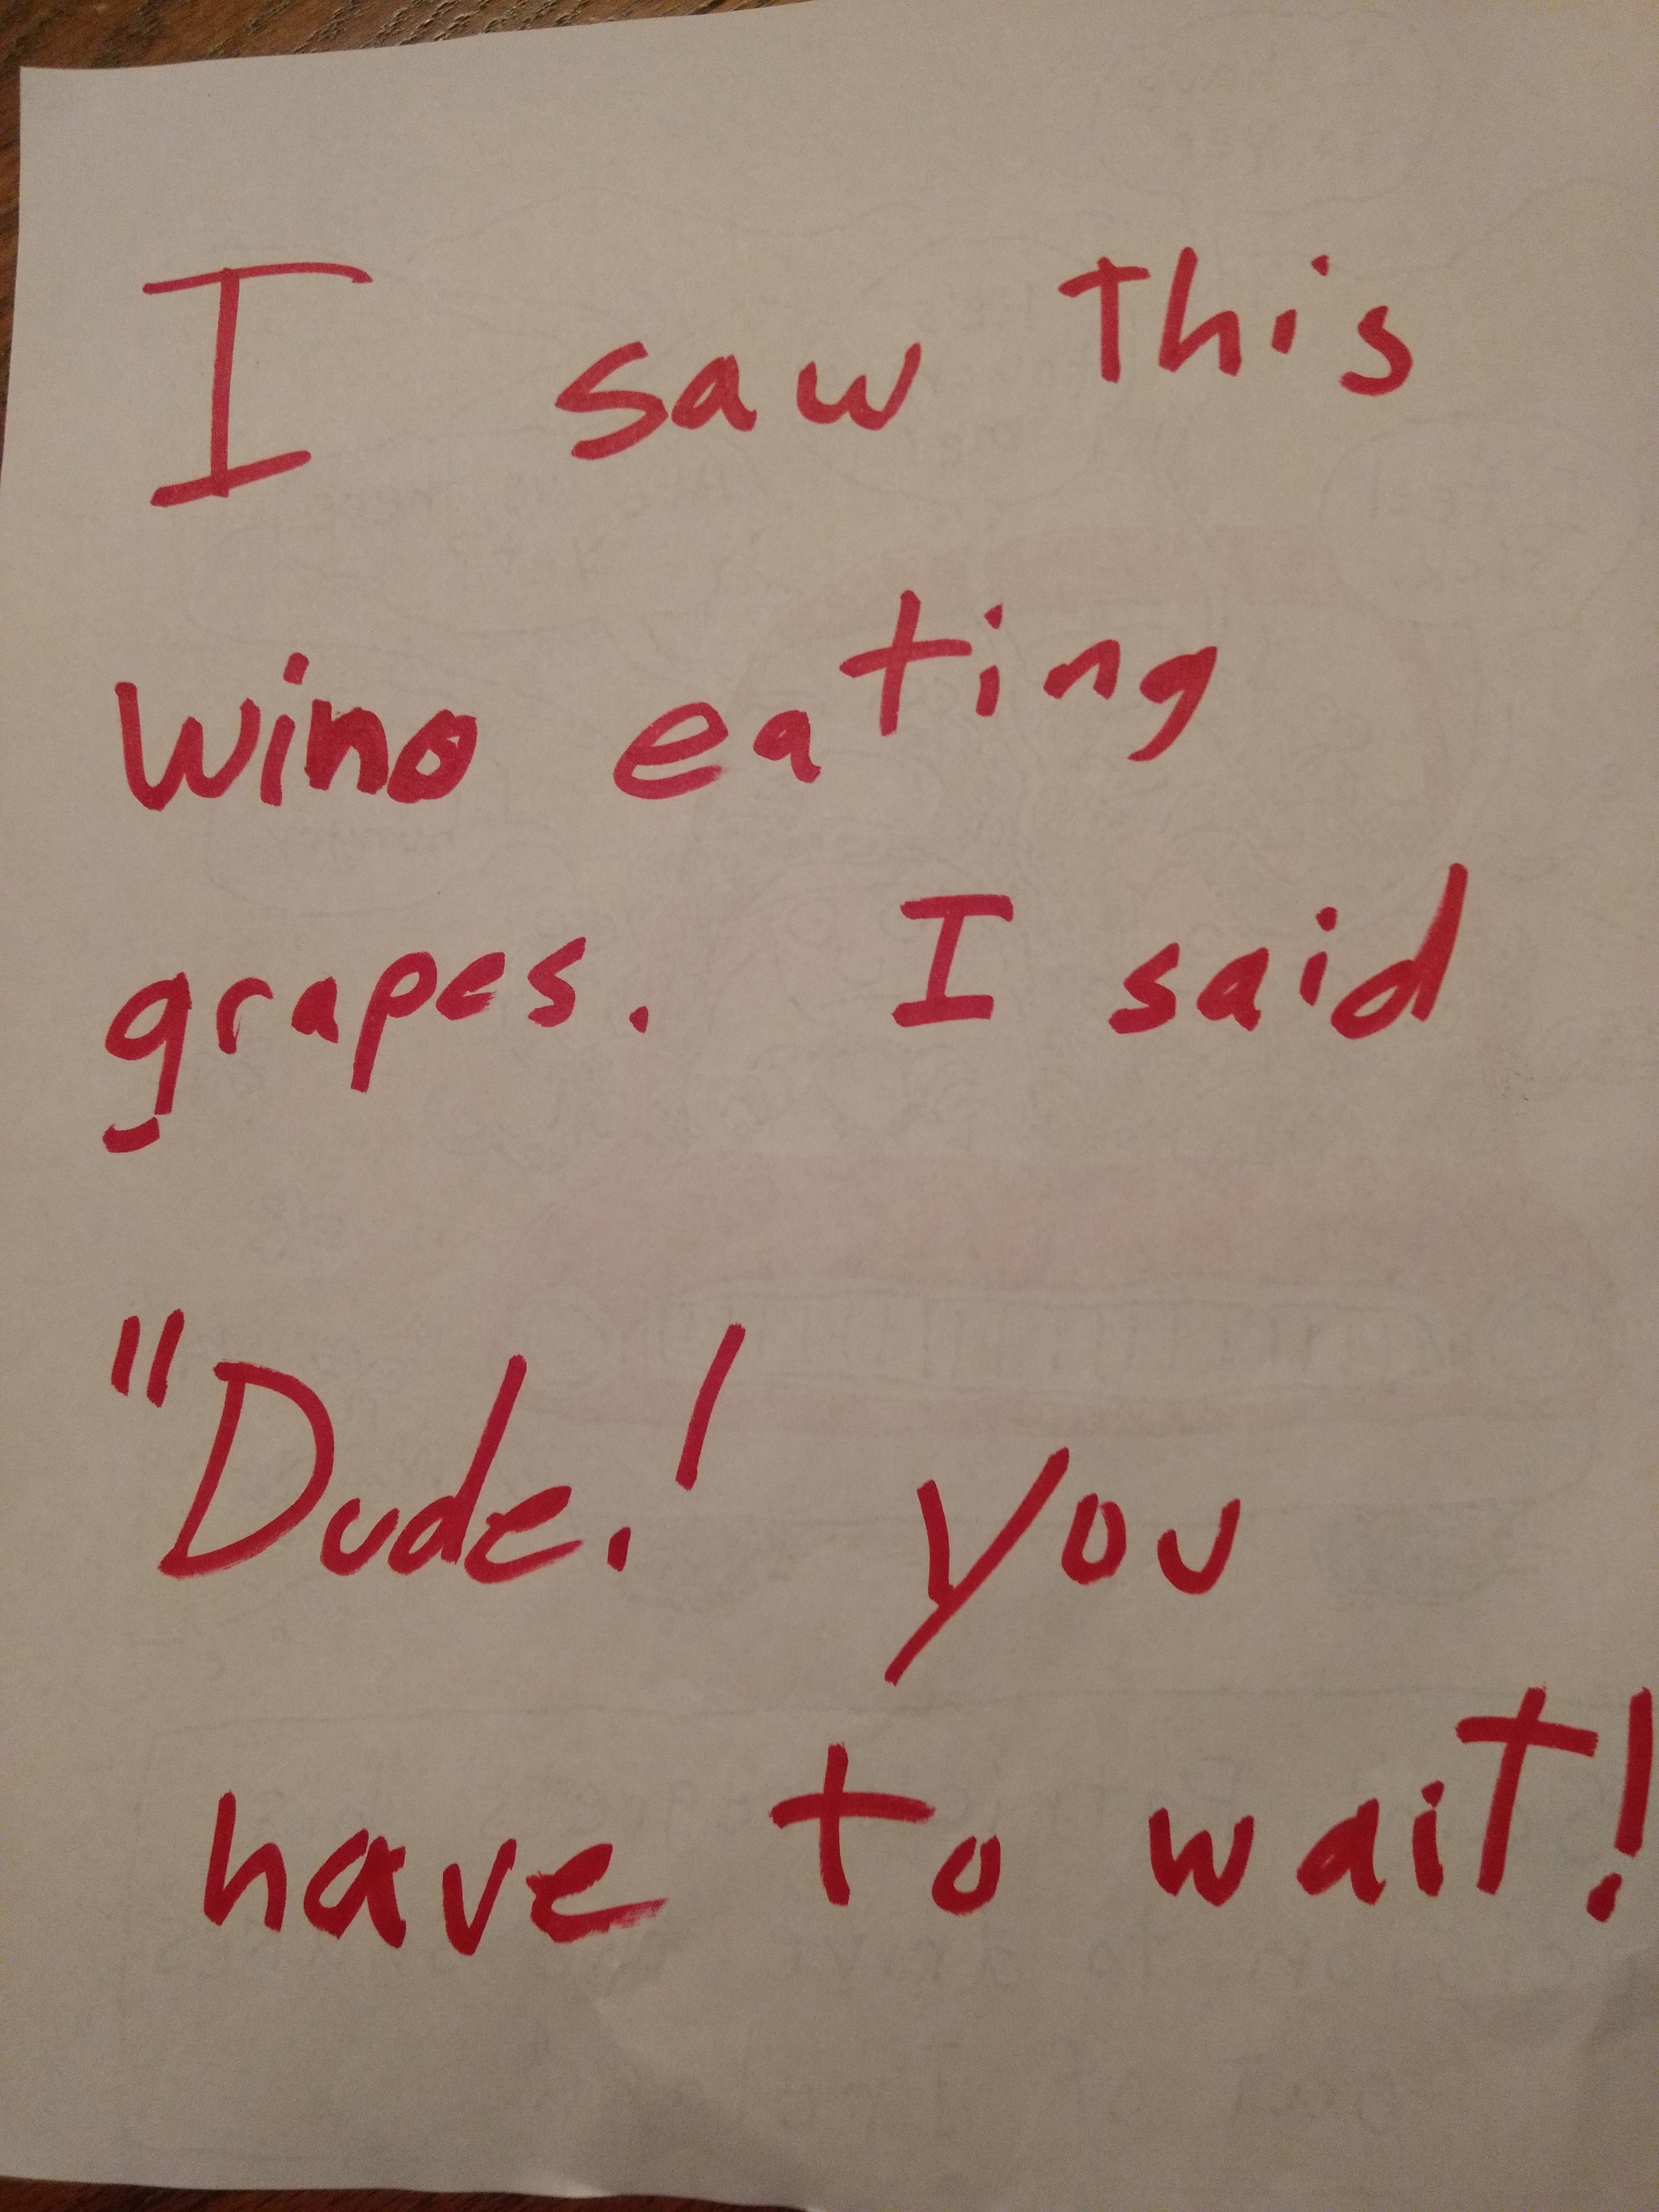 I saw this
wino eating
grapes. I said
"Dude! you
have to wait!